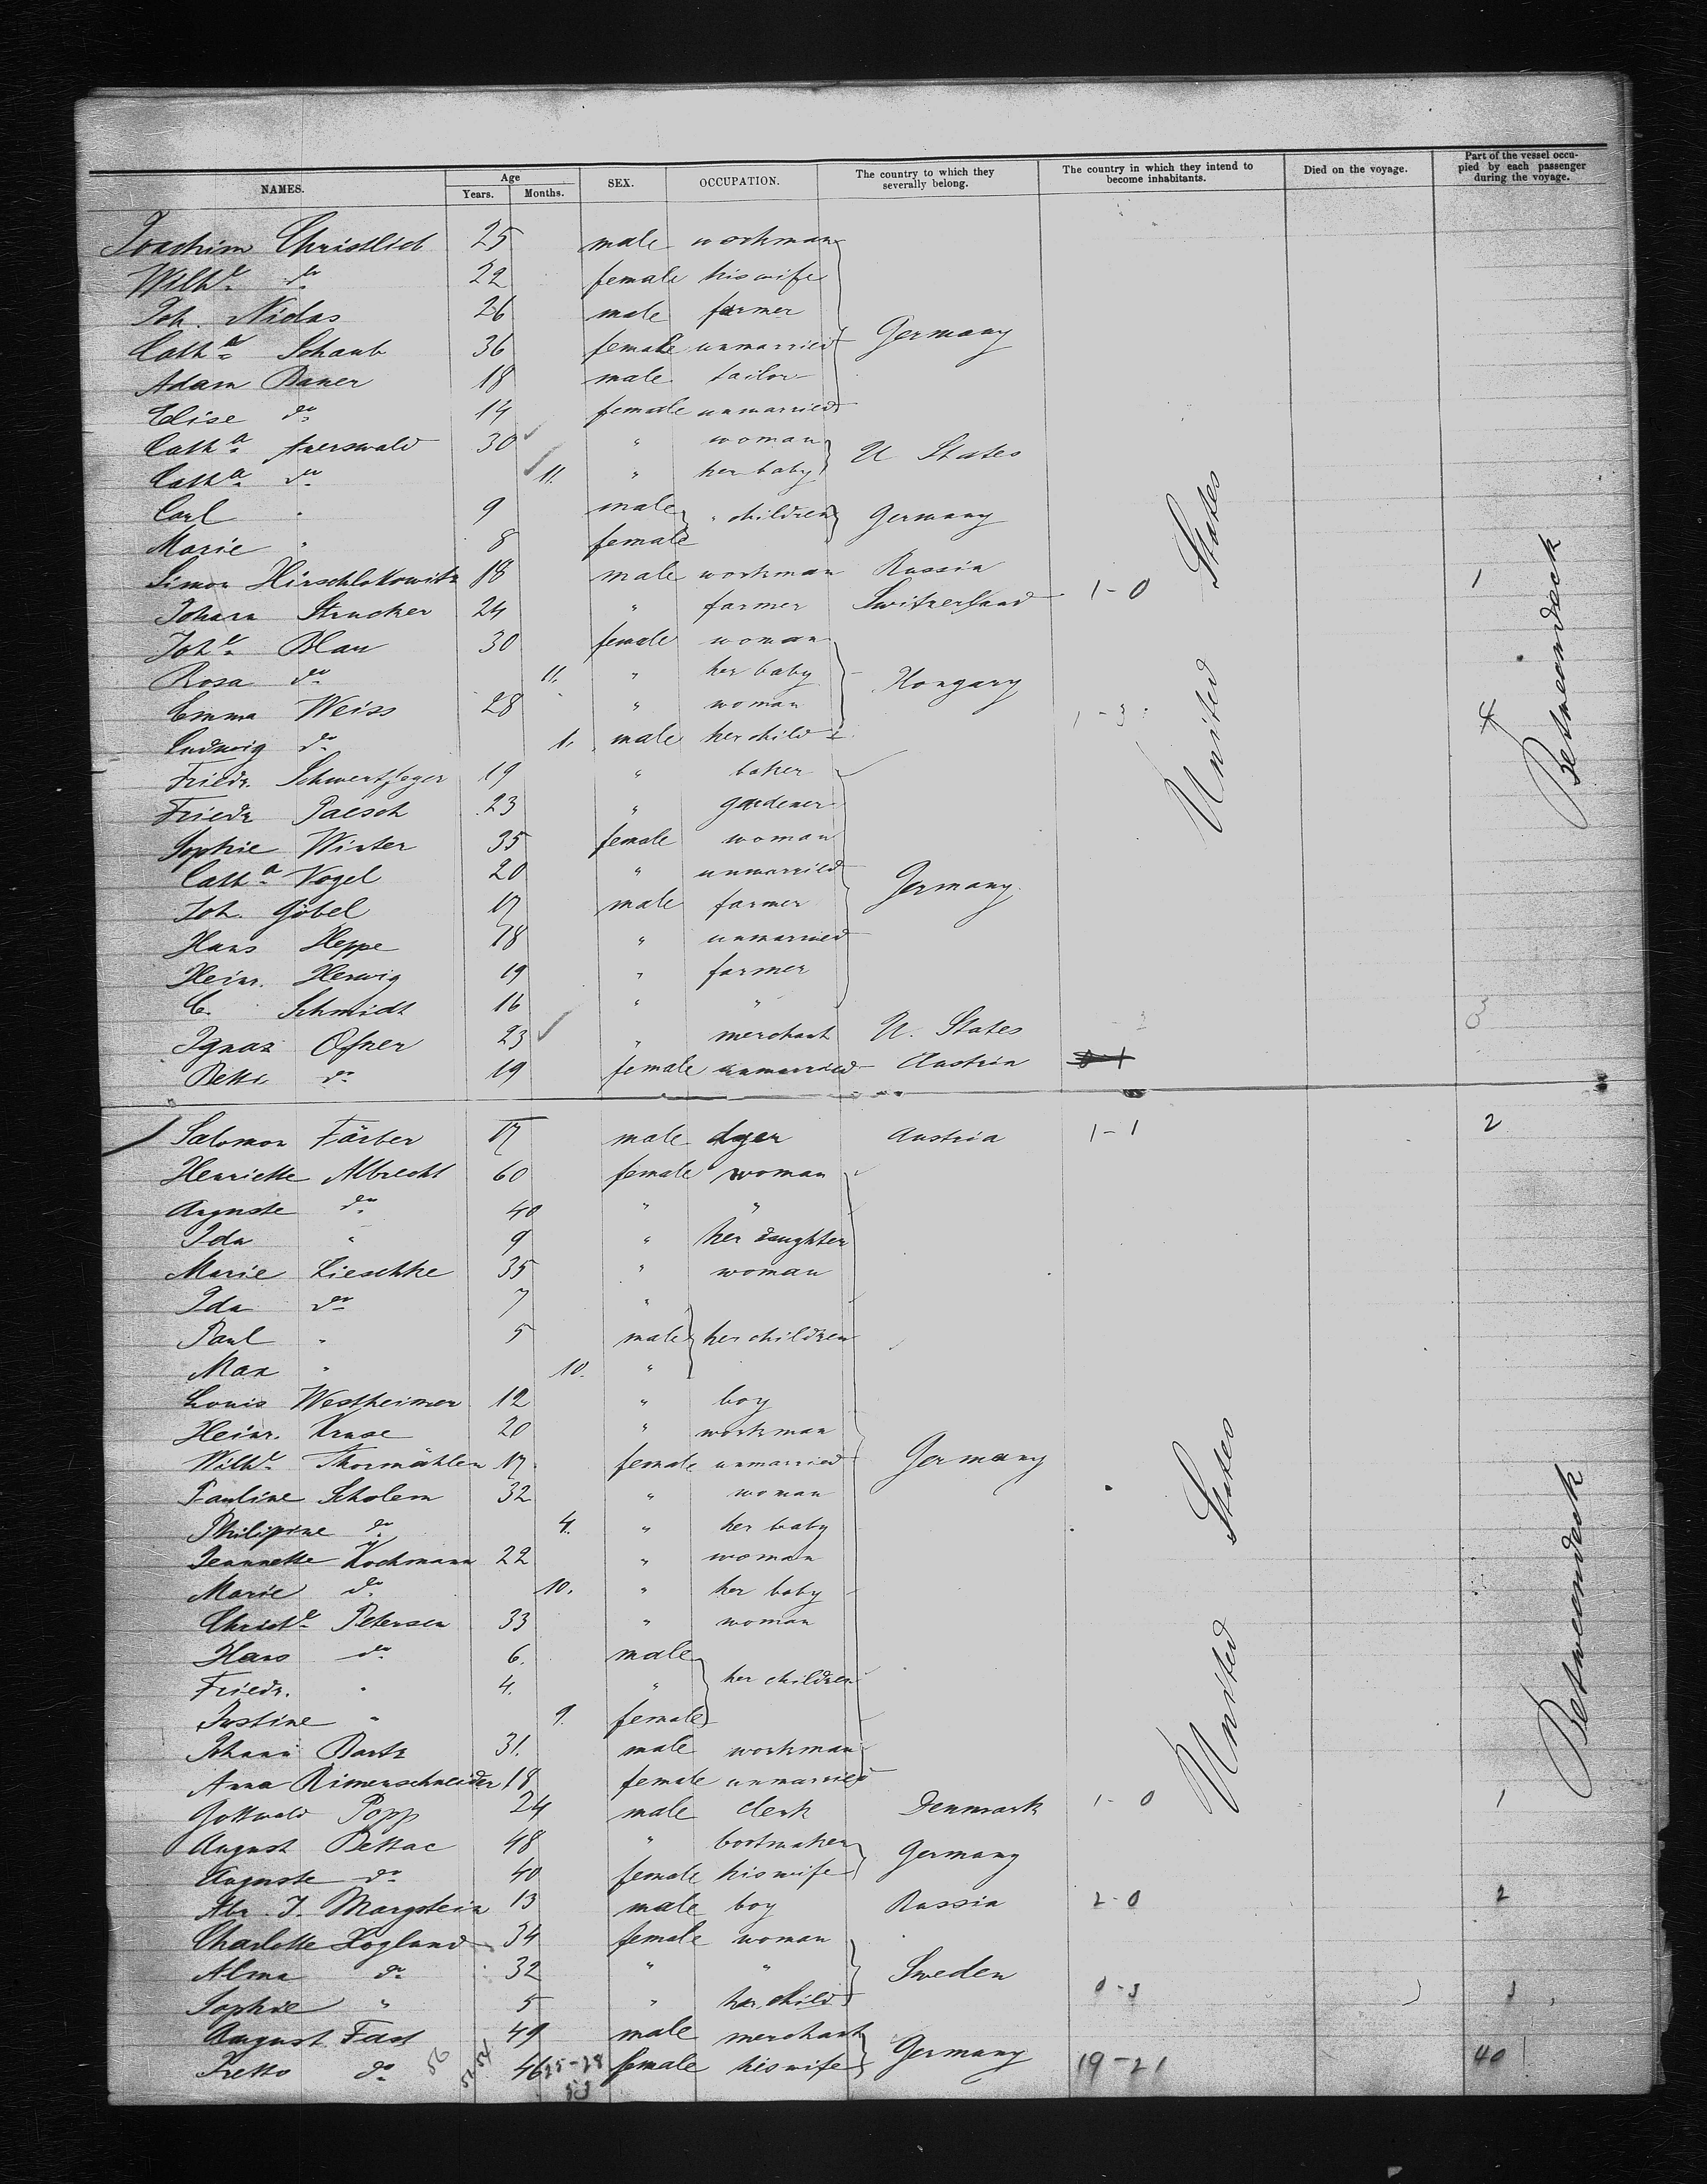 NAMES. Age SEX. OCCUPATION. The country to which they severally belong. The country in which they intend to become inhabitants. Died on the voyage. Part of the vessel occupied by each passenger during the voyage.
Years. Months.
Joachim Christlieb 25 male workman
Wilhe do 22 female his wife
Joh. Niclas 26 male farmer
Catha Schaub 36 female unmarried Germany
Adam Bauer 18 male tailor
Elise do 14 female unmarried
Catha Auerswald 30 " woman U States
Catha do 11. " her baby
Carl " 9 male " children Germany
Marie " 8 female
Simon Hirschlokowitz 18 male workman Russia
Johann Strucker 24 " farmer Switzerland 1-0 1
Johe Blau 30 female woman
Rosa do 11. " her baby Hongary
Emma Weiss 28 " woman 1-3 4
Ludwig do 1. male her child
Friedr. Schwertfeger 19 " baker
Friedr Paesch 23 " gardener
Sophie Winter 35 female woman
Catha Vogel 20 " unmarried Germany
Joh. Göbel 17 male farmer
Hans Heppe 18 " unmarried
Heinr. Herwig 19 " farmer
C. Schmidt 16 " "
Ignaz Ofner 23 " merchant U. States
Betti do 19 female unmarried Austria
United States
Betweendeck
Salomon Färber 17 male dyer Austria 1-1 2
Henriette Albrecht 60 female woman
Auguste do 40 " "
Ida " 9 " her daughter
Marie Lieschke 35 " woman
Ida do 7 "
Paul " 5 male her children
Max " 10. "
Louis Westheimer 12 " boy
Heinr. Kruse 20 " workman
Wilhe Thormählen 17 female unmarried Germany
Pauline Scholem 32 " woman
Philipine do 4. " her baby
Jeannette Kochmann 22 " woman
Marie do 10. " her baby
Christe Petersen 33 " woman
Hans do 6. male
Friedr. " 4. " her children
Justine " 9. female
Johann Bartz 31. male workman
Anna Rimenschneider 18 female unmarried
Gottwald Popp 24 male clerk Denmark 1-0 1
August Bettac 48 " bootmaker Germany
Auguste do 40 female his wife
Abr. J. Margstein 13 male boy Russia 2-0 2
Charlotte Hoglund 34 female woman
Alma do 32 " " Sweden
Sophie " 5 " her child 0-3 3
August Fast 49 male merchant Germany
do 46 25-28 female his wife 19-21 40
United States
Betweendeck